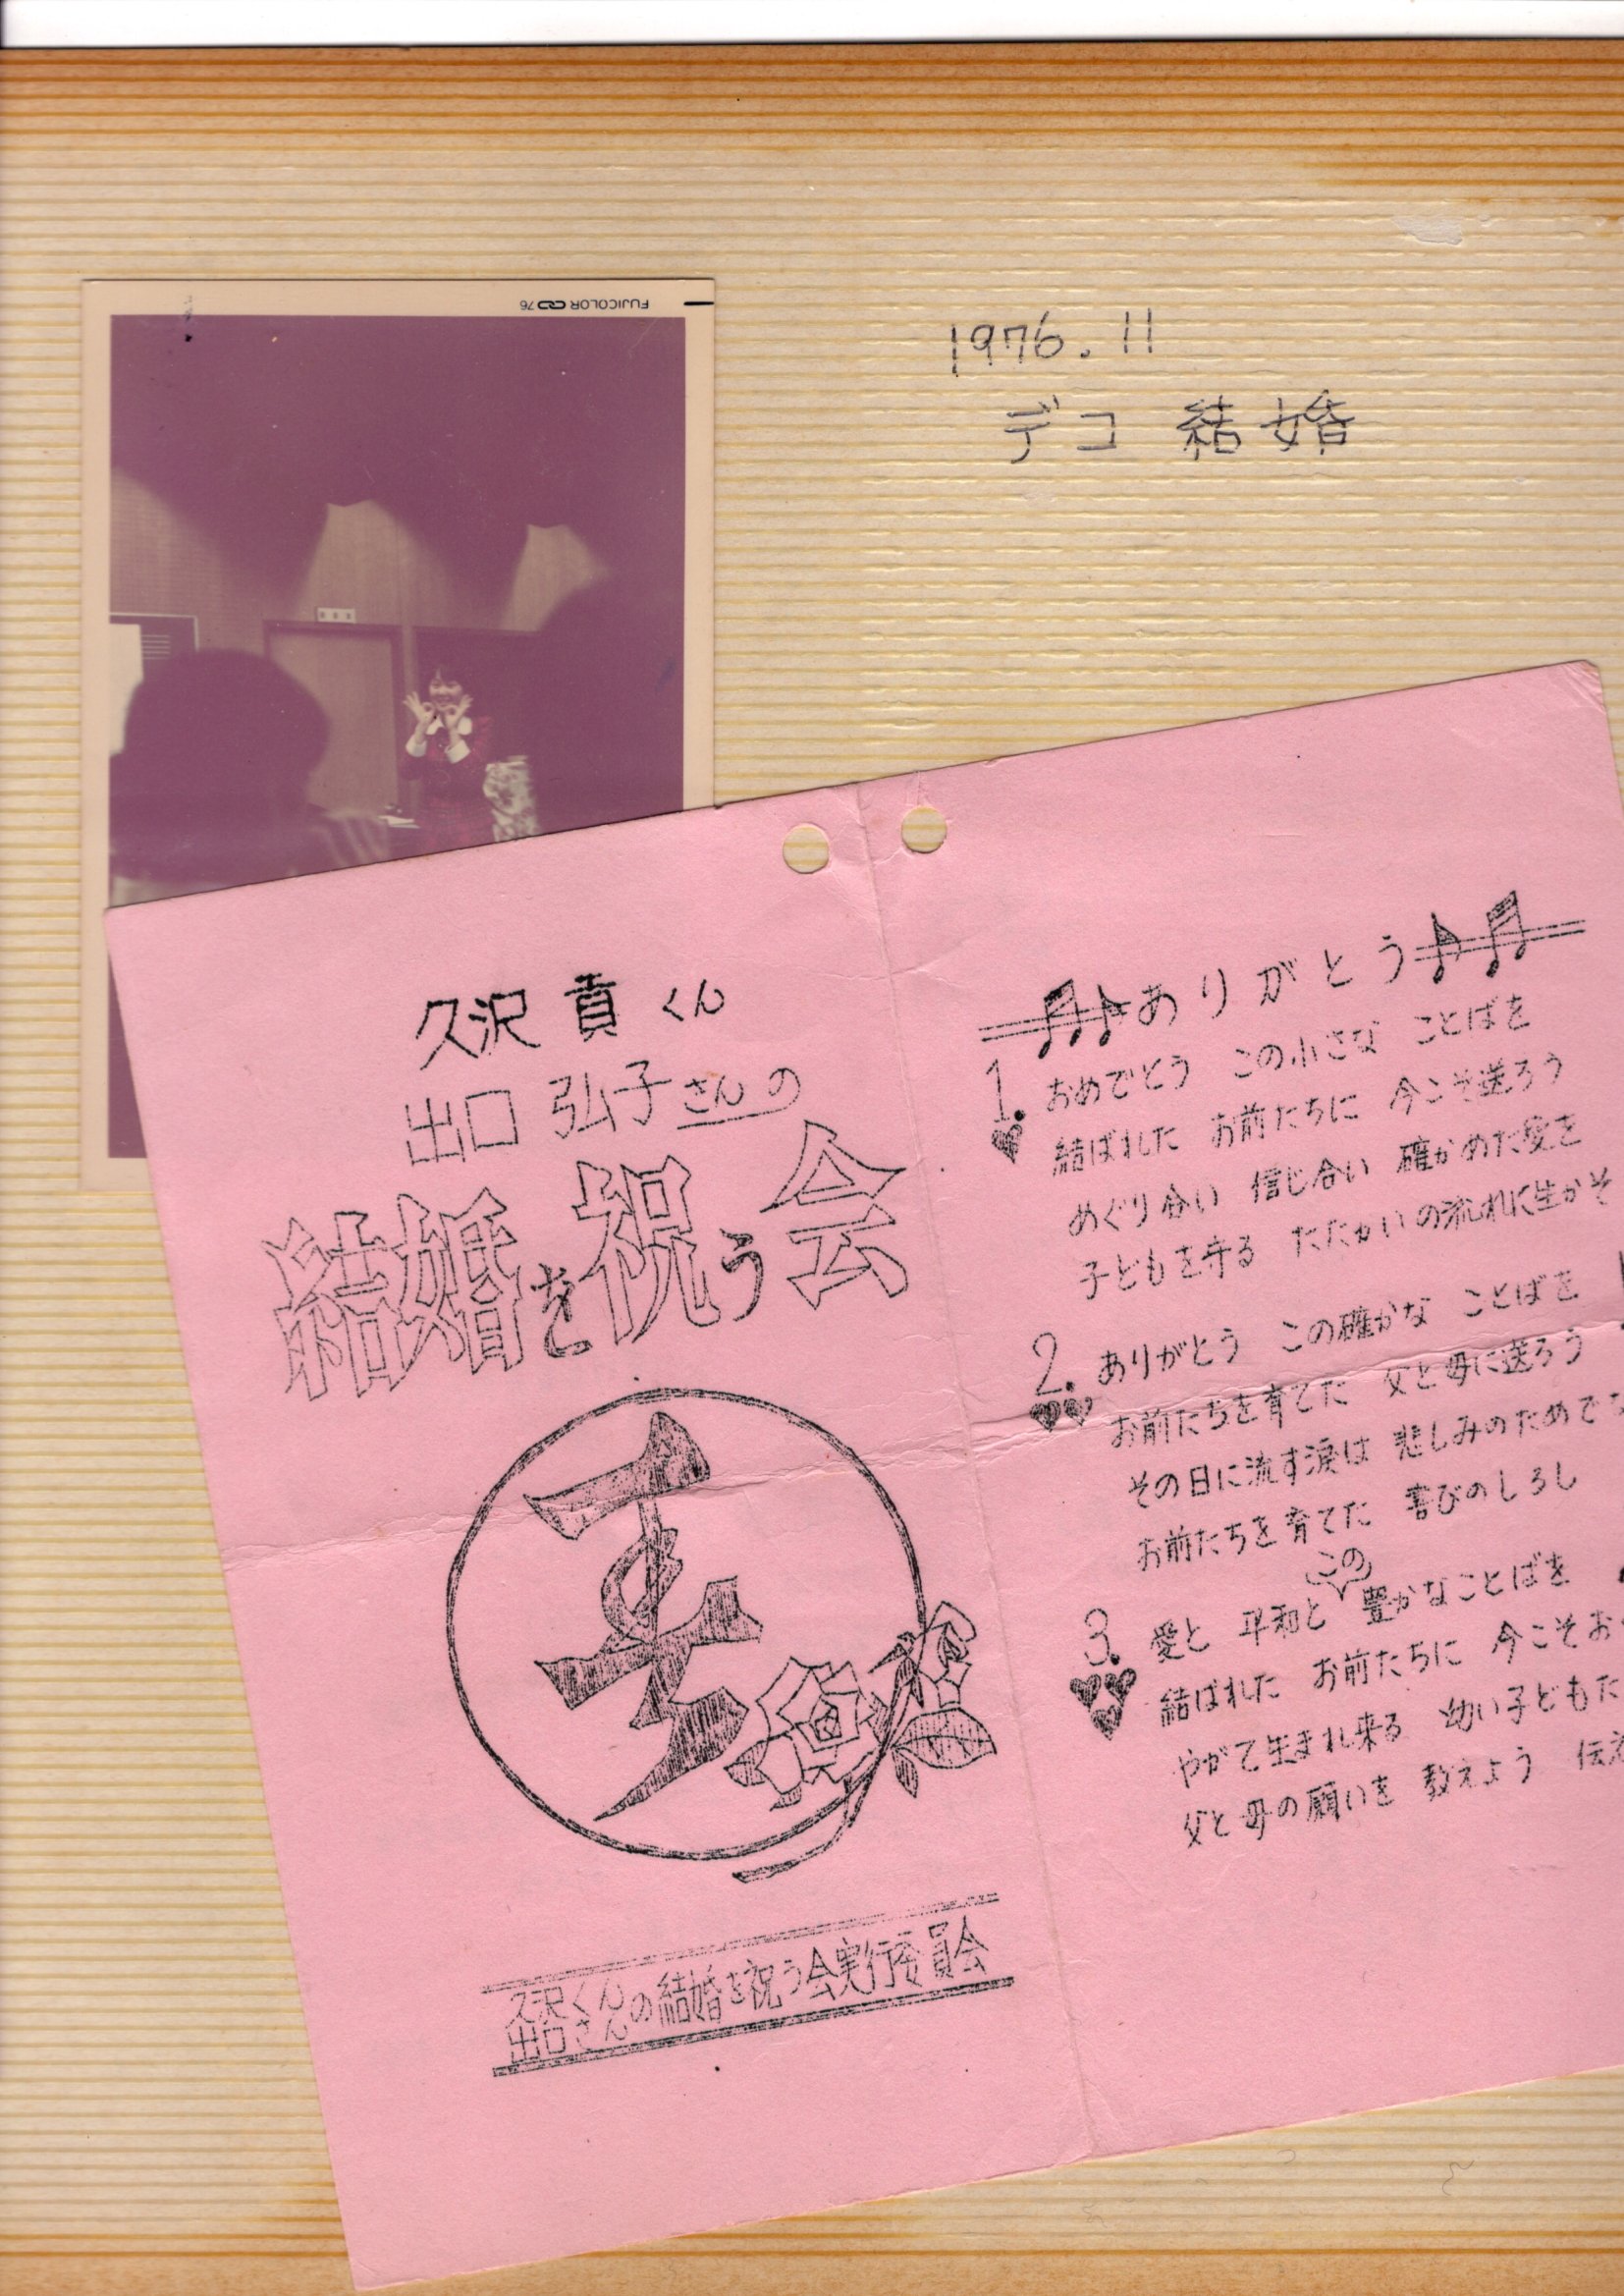 FUJICOLOR 76
1976.11
デコ 結婚
久沢 貢くん
出口 弘子さんの
結婚を祝う会
ありがとう
1. おめでとう この小さな ことばを
結ばれた お前たちに 今こそ送ろう
めぐり合い 信じ合い 確かめた愛を
子どもを守る たたかいの流れに生かそ
2. ありがとう この確かな ことばを
お前たちを育てた 父と母に送ろう
その日に流す涙は 悲しみのためでな
お前たちを育てた 喜びのしるし
この
3. 愛と 平和と 豊かなことばを
結ばれた お前たちに 今こそお
やがて生まれ来る 幼い子どもた
父と母の願いを 教えよう 伝え
久沢くん
出口さん
の結婚を祝う会実行委員会